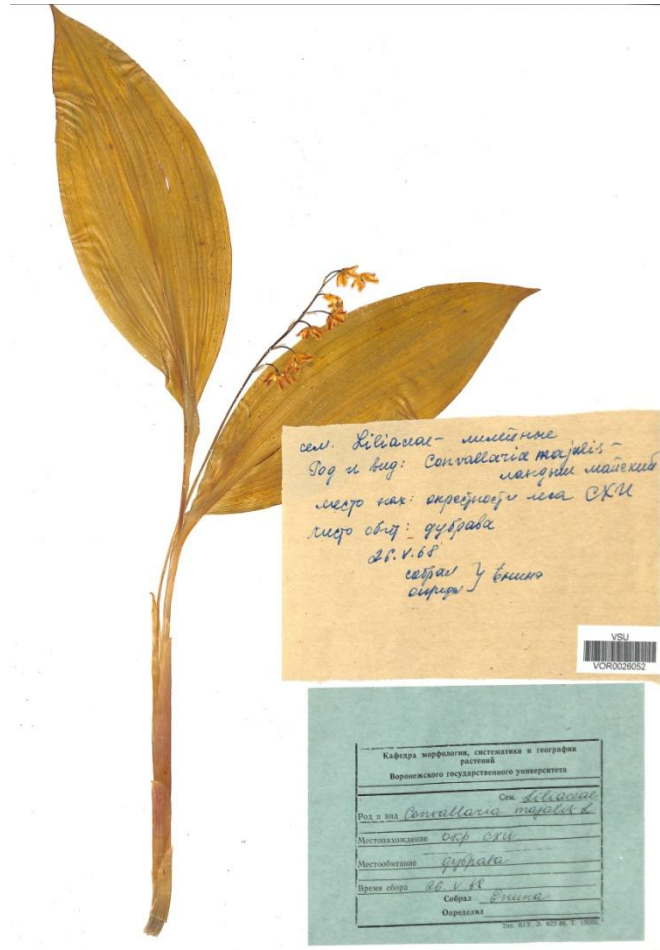 сем. Liliaceae - лилейные
Род и вид: Convallaria majalis -
ландыш майский
место нах: окрестности леса СХИ
место обит: дубрава
26.V.68
собрал } Енина
определ
VSU
VOR0026052
Кафедра морфологии, систематики и географии
растений
Воронежского государственного университета
Сем. Liliaceae
Род и вид Convallaria majalis L
Местонахождение окр СХИ
Местообитание дубрава
Время сбора 26 V 68
Собрал Енина
Определил
Тип. ВГУ. З. 425.66. Т. 10000.